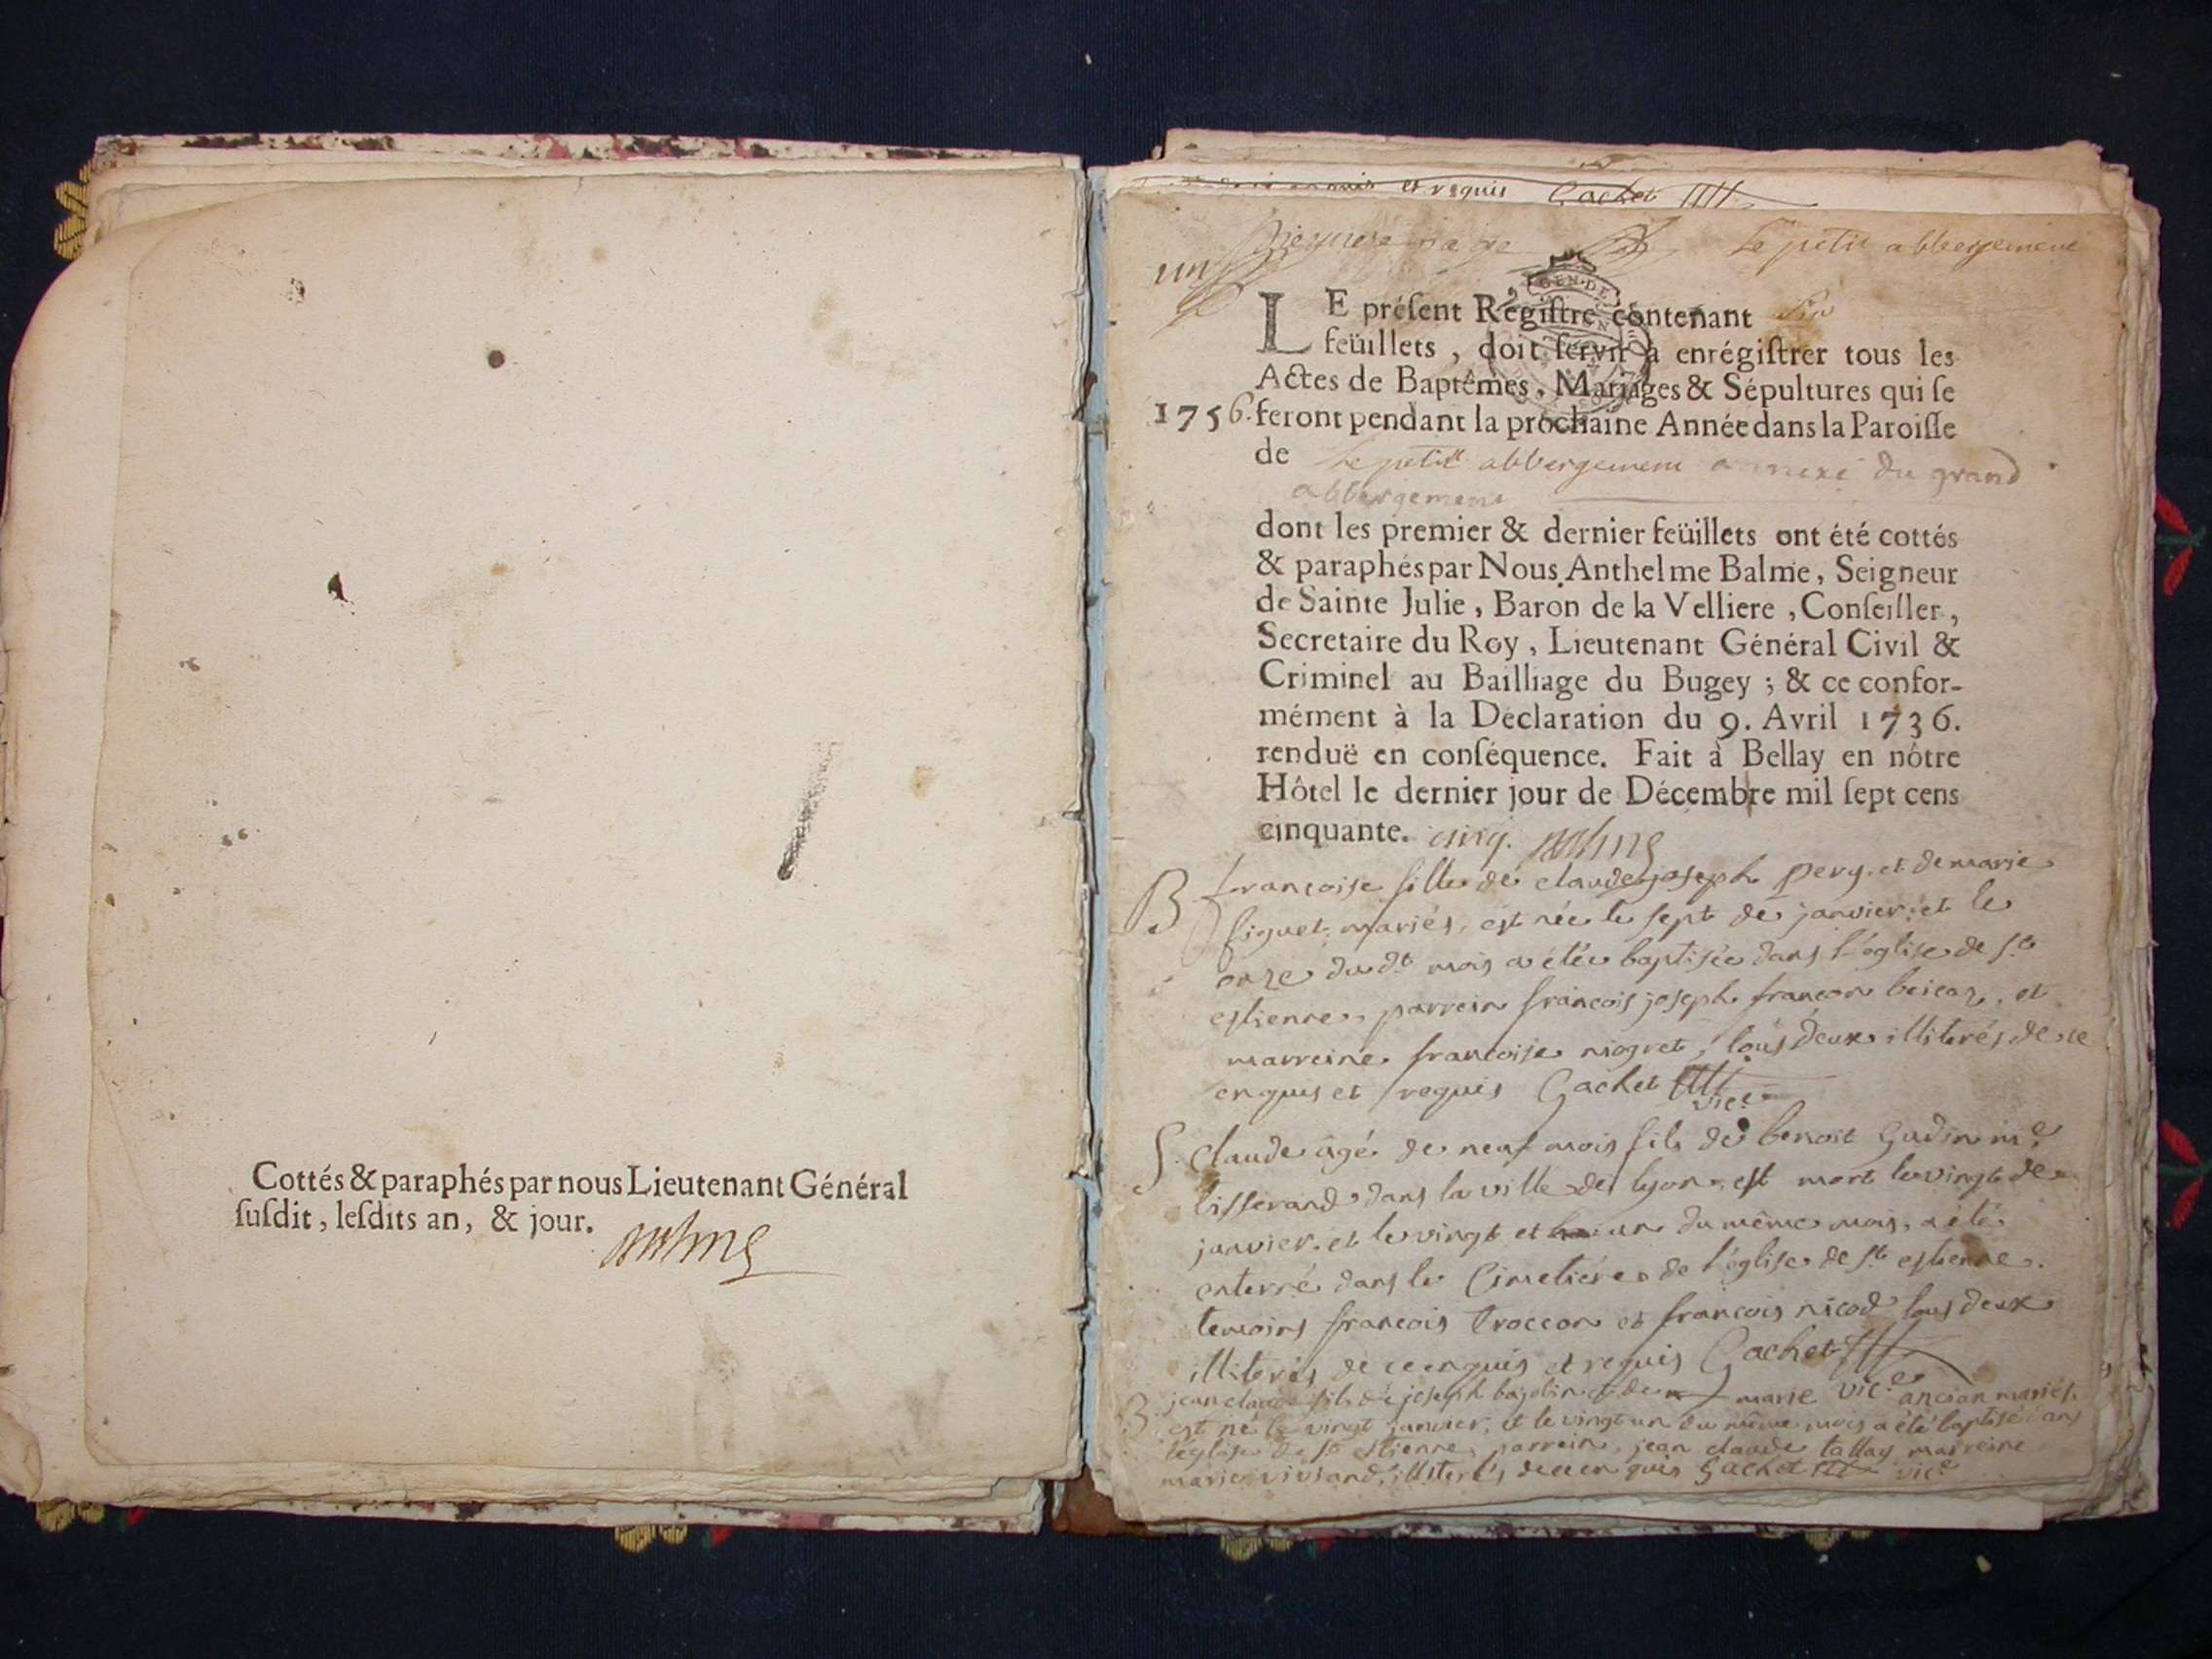 Cottés & paraphés par nous Lieutenant Général
suſdit, leſdits an, & jour.
et requis Gachet
un premiere page Le petit abbergement
LE préſent Régiſtre contenant Six
feüillets, doit ſervir à enrégiſtrer tous les
Actes de Baptêmes, Mariages & Sépultures qui ſe
1756. feront pendant la prochaine Année dans la Paroiſſe
de Le petit abbergement annexe du grand
abbergement
dont les premier & dernier feüillets ont été cottés
& paraphés par Nous Anthelme Balme, Seigneur
de Sainte Julie, Baron de la Velliere, Conſeiller,
Secretaire du Roy, Lieutenant Général Civil &
Criminel au Bailliage du Bugey; & ce confor-
mément à la Déclaration du 9. Avril 1736.
renduë en conſéquence. Fait à Bellay en nôtre
Hôtel le dernier jour de Décembre mil ſept cens
cinquante. cinq.
B françoise fille de claude joseph pery et de marie
figuet mariés, est née le sept de janvier et le
onze du dt mois a étée baptisée dans l'église de st
estienne, parrein françois joseph françon et
marreine françoise niogret, tous deux illiterés de ce
enquis et requis Gachet vice
S. Claude âgé de neuf mois fils de benoit Gudin me
tisserand dans la ville de lyon est mort le vingt de
janvier et le vingt et un du même mois, a été
enterré dans le Cimetiére de l'église de st estienne.
temoins françois troccon et françois nicod tous deux
illiterés de ce enquis et requis Gachet vice
B jean claude fils de joseph bajolin et de marie ancian mariés,
est né le vingt janvier, et le vingt un du même mois a été baptisé dans
l'église de st estienne, parrein, jean claude tallay marreine
marie vivsand, illiterés, de ce enquis Gachet vice